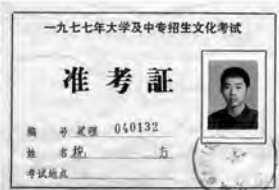 一九七七年大学及中专招生文化考试
准考証
编 号 理 040132
姓 名 税 方
考试地点